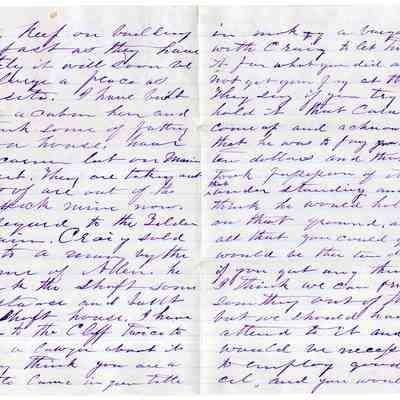 Keep on building
fast as they have
it will soon be
large a place as
I have built
a cabin here and
some of putting
a house near
claim lot on Main
They are taking out
of are out of the
mine now.
regard to the Tilden
Craig sold
to a man by the
of Allen he
the shaft some
and built
shaft house. I have
to the Cliff twice to
a lawyer about it
think you are a
to Come in your title
in making a
with Craig to let
for what you did a
not get your pay at th
They say if you try
hold it that
come up and
that he was to pay you
ten dollars and
took possession
under standing an
think he would hol
on that ground, a
all that you could g
would be the ten d
if you got any thin
I think we can
something out of
but we should ha
attend to it and
would be necess
to employ good
cil, and you woul